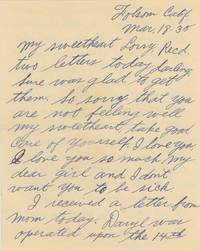 Folsom Calif
Mar. 18-30
My sweetheart Lovey Recd.
two letters today darling
sure was glad to get
them. So sorry that you
are not feeling well
my sweetheart, take good
care of yourself, I love you
I love you so much my
dear girl and I dont
want you to be sick
I received a letter from
mom today. Daryl was
operated upon the 14th